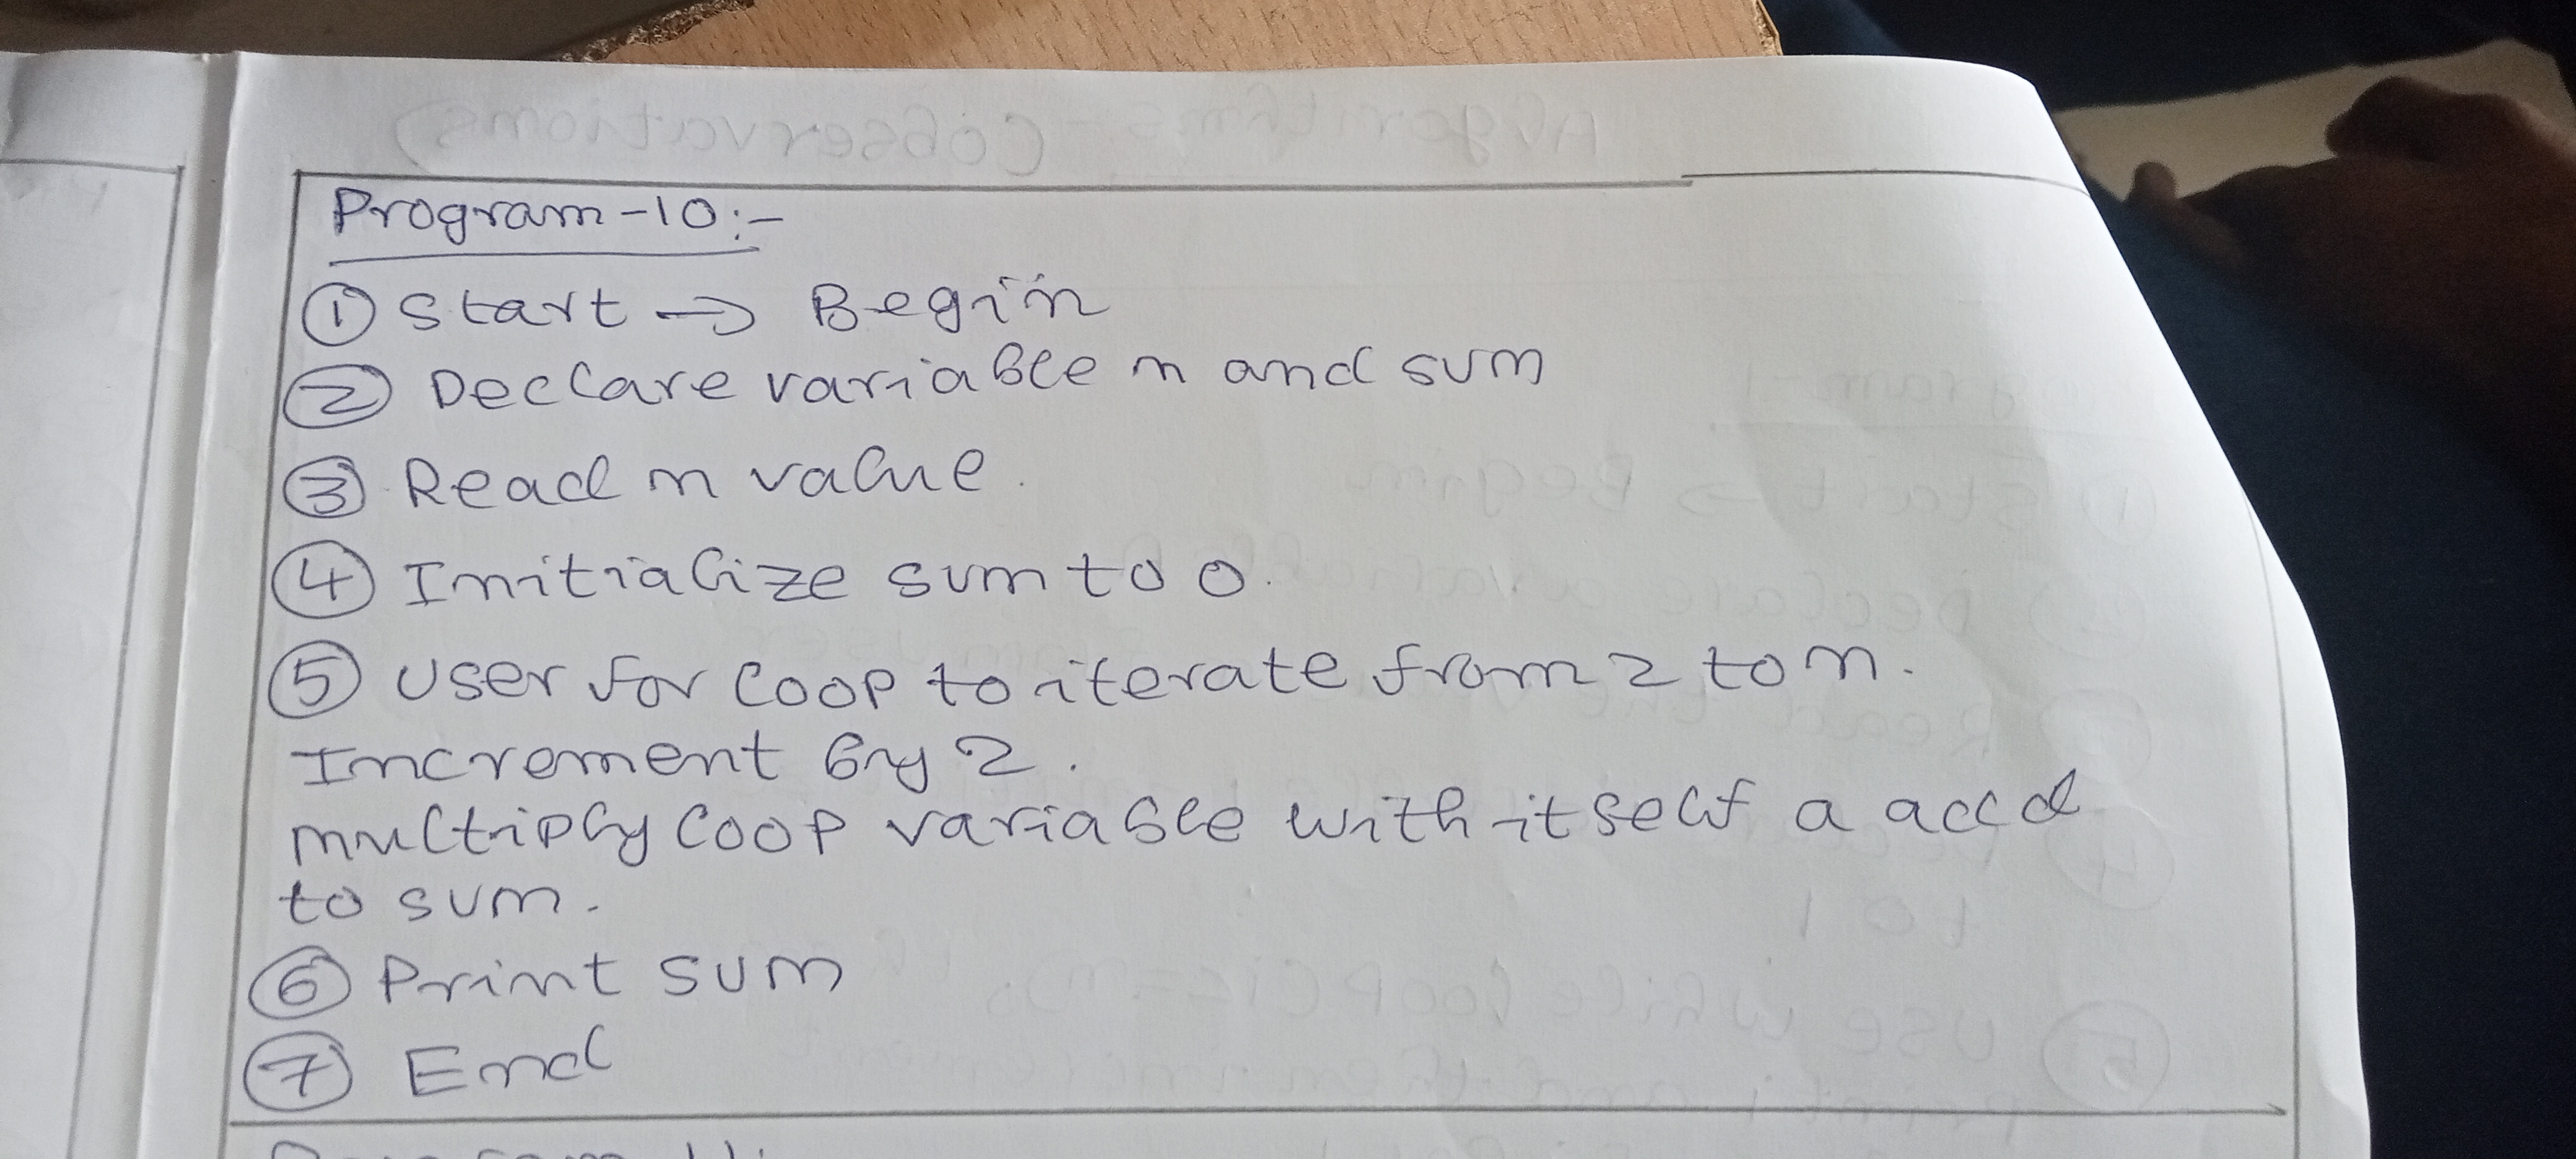 Program-10:-
① Start → Begin
② Declare variable n and sum
③ Read n value.
④ Initialize sum to 0.
⑤ User for loop to iterate from 2 to n.
Increment by 2.
multiply loop variable with itself a add
to sum.
⑥ Print sum
⑦ End